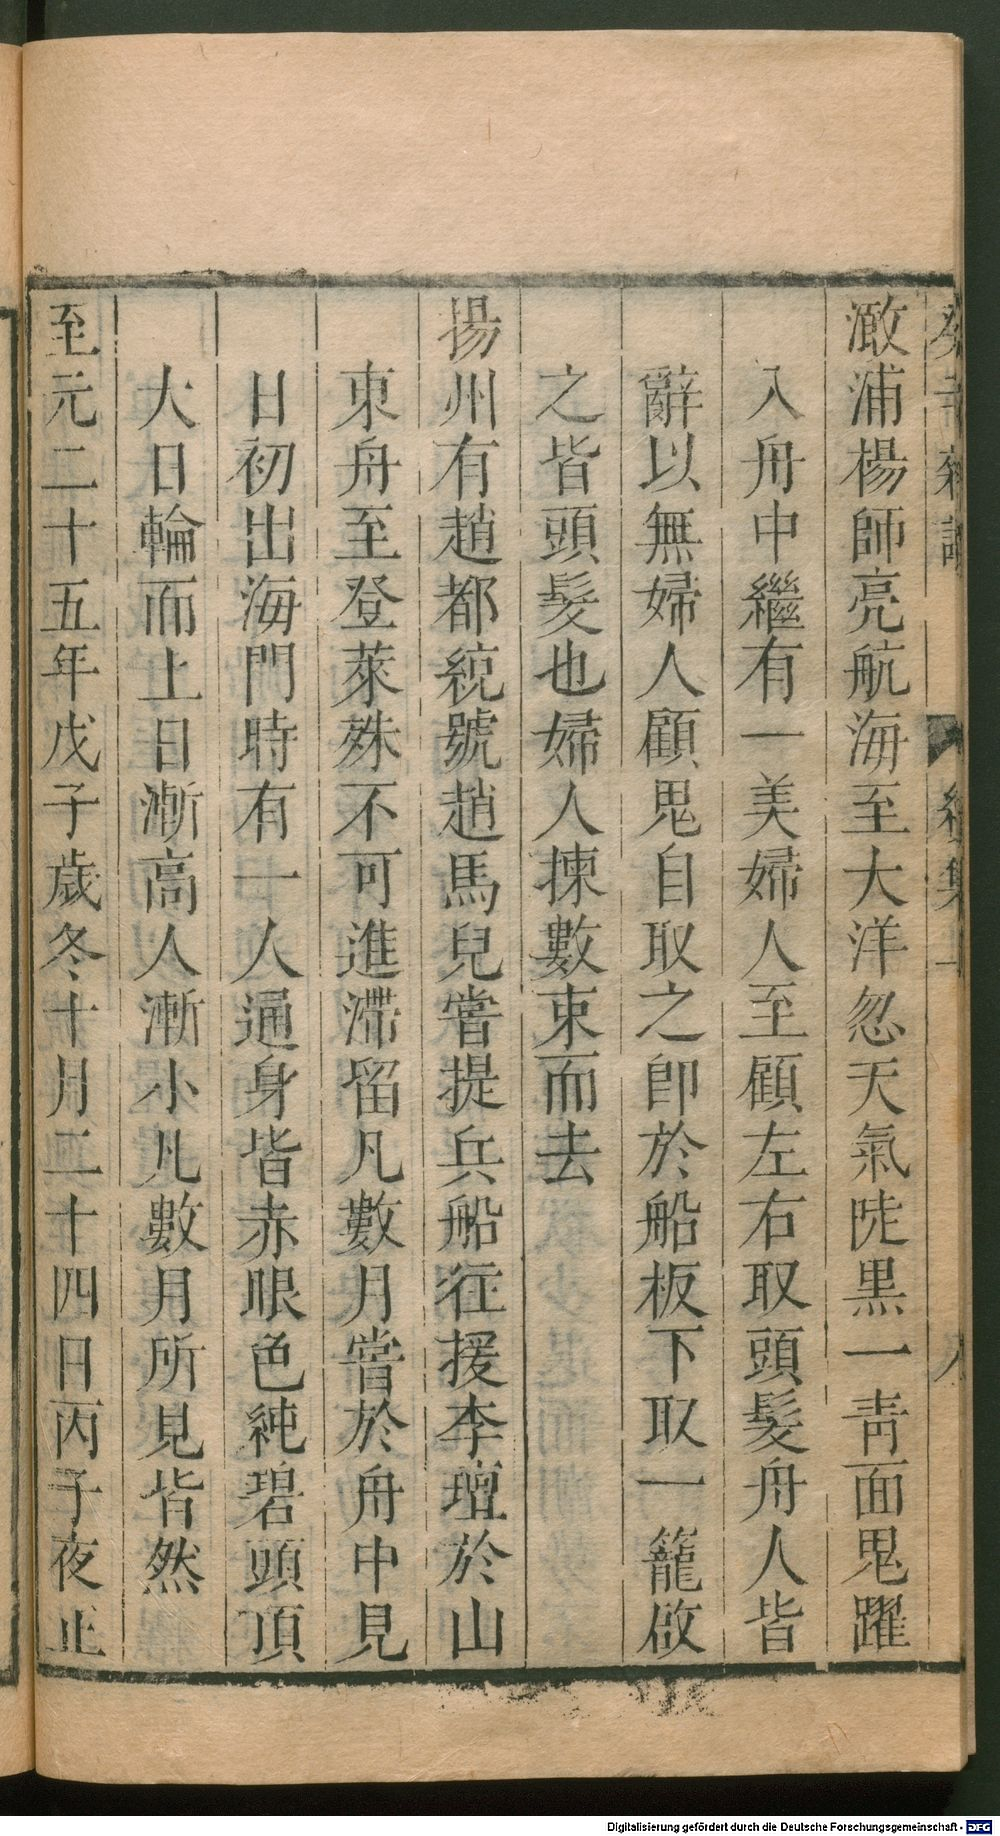 澉浦楊師亮航海至大洋忽天氣陡黒一靑面鬼躍
入舟中繼有一美婦人至顧左右取頭髮舟人皆
辭以無婦人顧鬼自取之卽於船板下取一籠啟
之皆頭髮也婦人揀數束而去
揚州有趙都統號趙馬兒嘗提兵船往援李璮於山
東舟至登萊殊不可進滯留凡數月嘗於舟中見
日初出海門時有一人通身皆赤眼色純碧頭頂
大日輪而上日漸高人漸小凡數月所見皆然
至元二十五年戊子歲冬十月二十四日丙子夜止
Digitalisierung gefördert durch die Deutsche Forschungsgemeinschaft - DFG